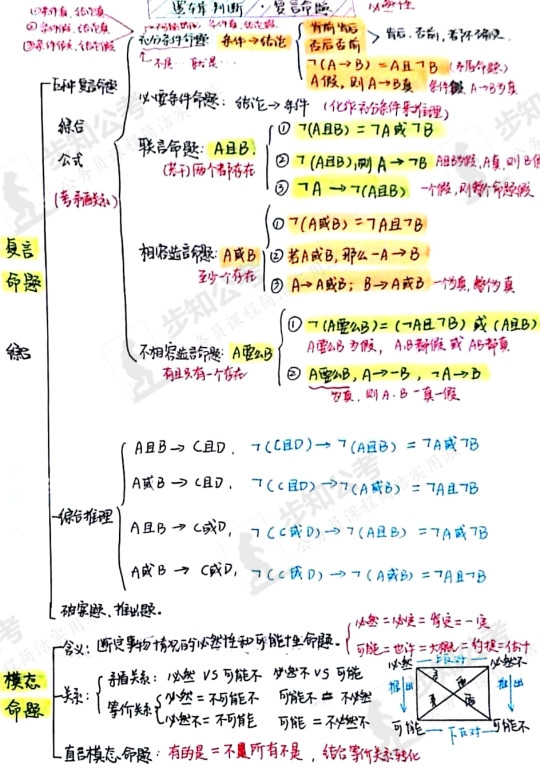 逻辑判断·复言命题
必要性
①条件真,结论真
②条件假,结论真
③条件假,结论假
充分条件命题: 条件→结论
肯前肯后
否后否前
肯后、否前,都不确定
¬(A→B)=A且¬B (矛盾命题)
A假,则A→B真 条件假 A→B为真
五种复言命题
综合
公式
(考矛盾关系)
必要条件命题: 结论→条件 (化作充分条件来推理)
联言命题: A且B.
两个都存在
①¬(A且B)=¬A或¬B
②¬(A且B),则A→¬B A且B为假,A真,则B假
③¬A→¬(A且B) 一个假,则整个命题假
相容选言命题: A或B
至少一个存在
①¬(A或B)=¬A且¬B
②若A或B,那么¬A→B
③A→A或B; B→A或B 一个为真,整个为真
复言
命题
综合
不相容选言命题: A要么B
有且只有一个存在
①¬(A要么B)=(¬A且¬B)或(A且B)
A要么B为假,A.B都假或AB都真
②A要么B,A→¬B,¬A→B
为真,则A.B一真一假
综合推理
A且B→C且D, ¬(C且D)→¬(A且B)=¬A或¬B
A或B→C且D, ¬(C且D)→¬(A或B)=¬A且¬B
A且B→C或D, ¬(C或D)→¬(A且B)=¬A或¬B
A或B→C或D, ¬(C或D)→¬(A或B)=¬A且¬B
破案题、推出题.
模态
命题
含义: 断定事物情况的必然性和可能性命题.
必然=必定=肯定=一定
可能=也许=大概=约摸=估计
关系:
矛盾关系: 必然 VS 可能不 必然不 VS 可能
等价关系
必然=不可能不 可能=不必然不
必然不=不可能 可能不=不必然
必然 上反对 必然不
推出 矛盾 推出
可能 下反对 可能不
直言模态命题: 有的是=不是所有不是,结合等价关系转化
步知公考
公务员课程简洁实用派